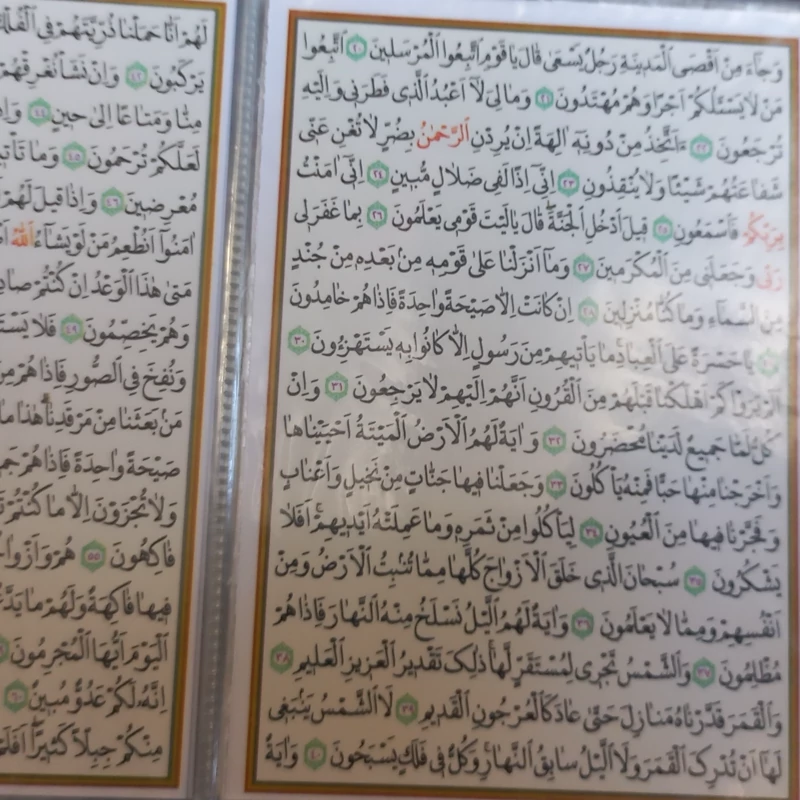 وَجَاءَ مِنْ اَقْصَى الْمَدِينَةِ رَجُلٌ يَسْعَى قَالَ يَاقَوْمِ اتَّبِعُوا الْمُرْسَلِينَ ﴿٢٠﴾ اِتَّبِعُوا
مَنْ لَا يَسْئَلُكُمْ اَجْرًا وَهُمْ مُهْتَدُونَ ﴿٢١﴾ وَمَالِىَ لَٓا اَعْبُدُ الَّذِى فَطَرَنِى وَاِلَيْهِ
تُرْجَعُونَ ﴿٢٢﴾ ءَاَتَّخِذُ مِنْ دُونِهِٓ اٰلِهَةً اِنْ يُرِدْنِ الرَّحْمٰنُ بِضُرٍّ لَا تُغْنِ عَنِّى
شَفَاعَتُهُمْ شَيْئًا وَلَا يُنْقِذُونِ ﴿٢٣﴾ اِنِّٓى اِذًا لَفِى ضَلَالٍ مُبِينٍ ﴿٢٤﴾ اِنِّٓى اٰمَنْتُ
بِرَبِّكُمْ فَاسْمَعُونِ ﴿٢٥﴾ قِيلَ ادْخُلِ الْجَنَّةَ قَالَ يَالَيْتَ قَوْمِى يَعْلَمُونَ ﴿٢٦﴾ بِمَا غَفَرَلِى
رَبِّى وَجَعَلَنِى مِنَ الْمُكْرَمِينَ ﴿٢٧﴾ وَمَٓا اَنْزَلْنَا عَلٰى قَوْمِهِ مِنْ بَعْدِهِ مِنْ جُنْدٍ
مِنَ السَّمَاءِ وَمَا كُنَّا مُنْزِلِينَ ﴿٢٨﴾ اِنْ كَانَتْ اِلَّا صَيْحَةً وَاحِدَةً فَاِذَا هُمْ خَامِدُونَ
﴿٢٩﴾ يَاحَسْرَةً عَلَى الْعِبَادِ مَا يَأْتِيهِمْ مِنْ رَسُولٍ اِلَّا كَانُوا بِهِ يَسْتَهْزِؤُنَ ﴿٣٠﴾
اَلَمْ يَرَوْا كَمْ اَهْلَكْنَا قَبْلَهُمْ مِنَ الْقُرُونِ اَنَّهُمْ اِلَيْهِمْ لَا يَرْجِعُونَ ﴿٣١﴾ وَاِنْ
كُلٌّ لَمَّا جَمِيعٌ لَدَيْنَا مُحْضَرُونَ ﴿٣٢﴾ وَاٰيَةٌ لَهُمُ الْاَرْضُ الْمَيْتَةُ اَحْيَيْنَاهَا
وَاَخْرَجْنَا مِنْهَا حَبًّا فَمِنْهُ يَأْكُلُونَ ﴿٣٣﴾ وَجَعَلْنَا فِيهَا جَنَّاتٍ مِنْ نَخِيلٍ وَاَعْنَابٍ
وَفَجَّرْنَا فِيهَا مِنَ الْعُيُونِ ﴿٣٤﴾ لِيَأْكُلُوا مِنْ ثَمَرِهِ وَمَا عَمِلَتْهُ اَيْدِيهِمْ اَفَلَا
يَشْكُرُونَ ﴿٣٥﴾ سُبْحَانَ الَّذِى خَلَقَ الْاَزْوَاجَ كُلَّهَا مِمَّا تُنْبِتُ الْاَرْضُ وَمِنْ
اَنْفُسِهِمْ وَمِمَّا لَا يَعْلَمُونَ ﴿٣٦﴾ وَاٰيَةٌ لَهُمُ الَّيْلُ نَسْلَخُ مِنْهُ النَّهَارَ فَاِذَا هُمْ
مُظْلِمُونَ ﴿٣٧﴾ وَالشَّمْسُ تَجْرِى لِمُسْتَقَرٍّ لَهَا ذٰلِكَ تَقْدِيرُ الْعَزِيزِ الْعَلِيمِ ﴿٣٨﴾
وَالْقَمَرَ قَدَّرْنَاهُ مَنَازِلَ حَتّٰى عَادَ كَالْعُرْجُونِ الْقَدِيمِ ﴿٣٩﴾ لَا الشَّمْسُ يَنْبَغِى
لَهَٓا اَنْ تُدْرِكَ الْقَمَرَ وَلَا الَّيْلُ سَابِقُ النَّهَارِ وَكُلٌّ فِى فَلَكٍ يَسْبَحُونَ ﴿٤٠﴾ وَاٰيَةٌ
لَهُمْ اَنَّا حَمَلْنَا ذُرِّيَّتَهُمْ فِى الْفُلْكِ
يَرْكَبُونَ ﴿٤٢﴾ وَاِنْ نَشَأْ نُغْرِقْهُمْ
مِنَّا وَمَتَاعًا اِلٰى حِينٍ ﴿٤٤﴾
لَعَلَّكُمْ تُرْحَمُونَ ﴿٤٥﴾ وَمَا
مُعْرِضِينَ ﴿٤٦﴾ وَاِذَا قِيلَ لَهُمْ
اٰمَنُٓوا اَنُطْعِمُ مَنْ لَوْ يَشَٓاءُ اللّٰهُ
مَتٰى هٰذَا الْوَعْدُ اِنْ كُنْتُمْ
وَهُمْ يَخِصِّمُونَ ﴿٤٩﴾ فَلَا
وَنُفِخَ فِى الصُّورِ فَاِذَا هُمْ مِنَ
مَنْ بَعَثَنَا مِنْ مَرْقَدِنَا هٰذَا مَا
صَيْحَةً وَاحِدَةً فَاِذَا هُمْ
وَلَا تُجْزَوْنَ اِلَّا مَا كُنْتُمْ
فَاكِهُونَ ﴿٥٥﴾ هُمْ
فِيهَا فَاكِهَةٌ وَلَهُمْ مَا
الْيَوْمَ اَيُّهَا الْمُجْرِمُونَ
اِنَّهُ لَكُمْ عَدُوٌّ مُبِينٌ ﴿٦٠﴾
مِنْكُمْ جِبِلًّا كَثِيرًا